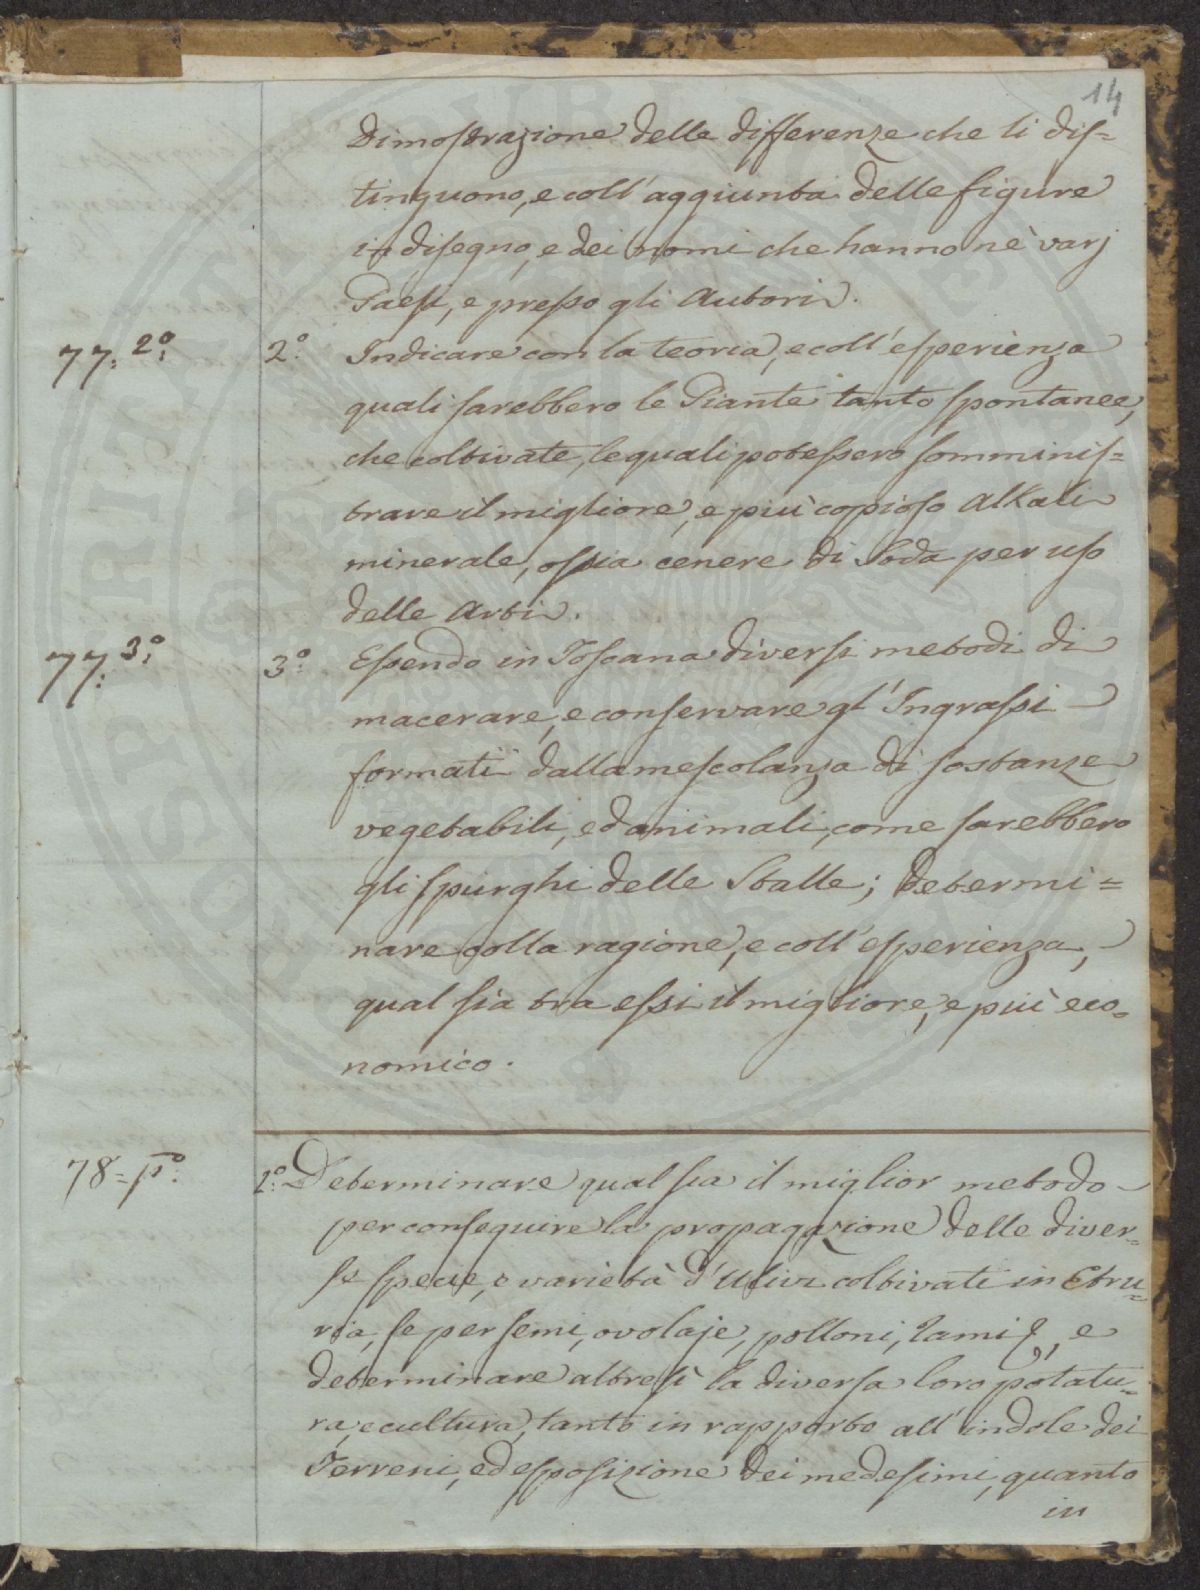 14
Dimostrazione delle differenze che li dis=
tinguono, e coll' aggiunta delle figure
in disegno, e dei nomi che hanno nè varj
Paesi, e presso gli Autori.
77. 2.º 2.º Indicare con la teoria, e coll' esperienza
quali sarebbero le Piante tanto spontanee,
che coltivate, le quali potessero somminis=
trare il migliore, e più copioso Alkali
minerale, ossia cenere di Soda per uso
delle Arti.
77. 3.º 3.º Essendo in Toscana diversi metodi di
macerare, e conservare gl' Ingrassi
formati dalla mescolanza di sostanze
vegetabili, ed animali, come sarebbero
gli spurghi delle Stalle; Determi=
nare colla ragione, e coll' esperienza,
qual sia tra essi il migliore, e più eco=
nomico.
78= p.º 1.º Determinare qual sia il miglior metodo
per conseguire la propagazione delle diver=
se specie, o varietà d' Ulivi coltivati in Etru=
ria, se per semi, ovolaje, polloni, rami &, e
determinare altresì la diversa loro potatu=
ra, e cultura, tanto in rapporto all' indole dei
Terreni, ed esposizione dei medesimi, quanto
in